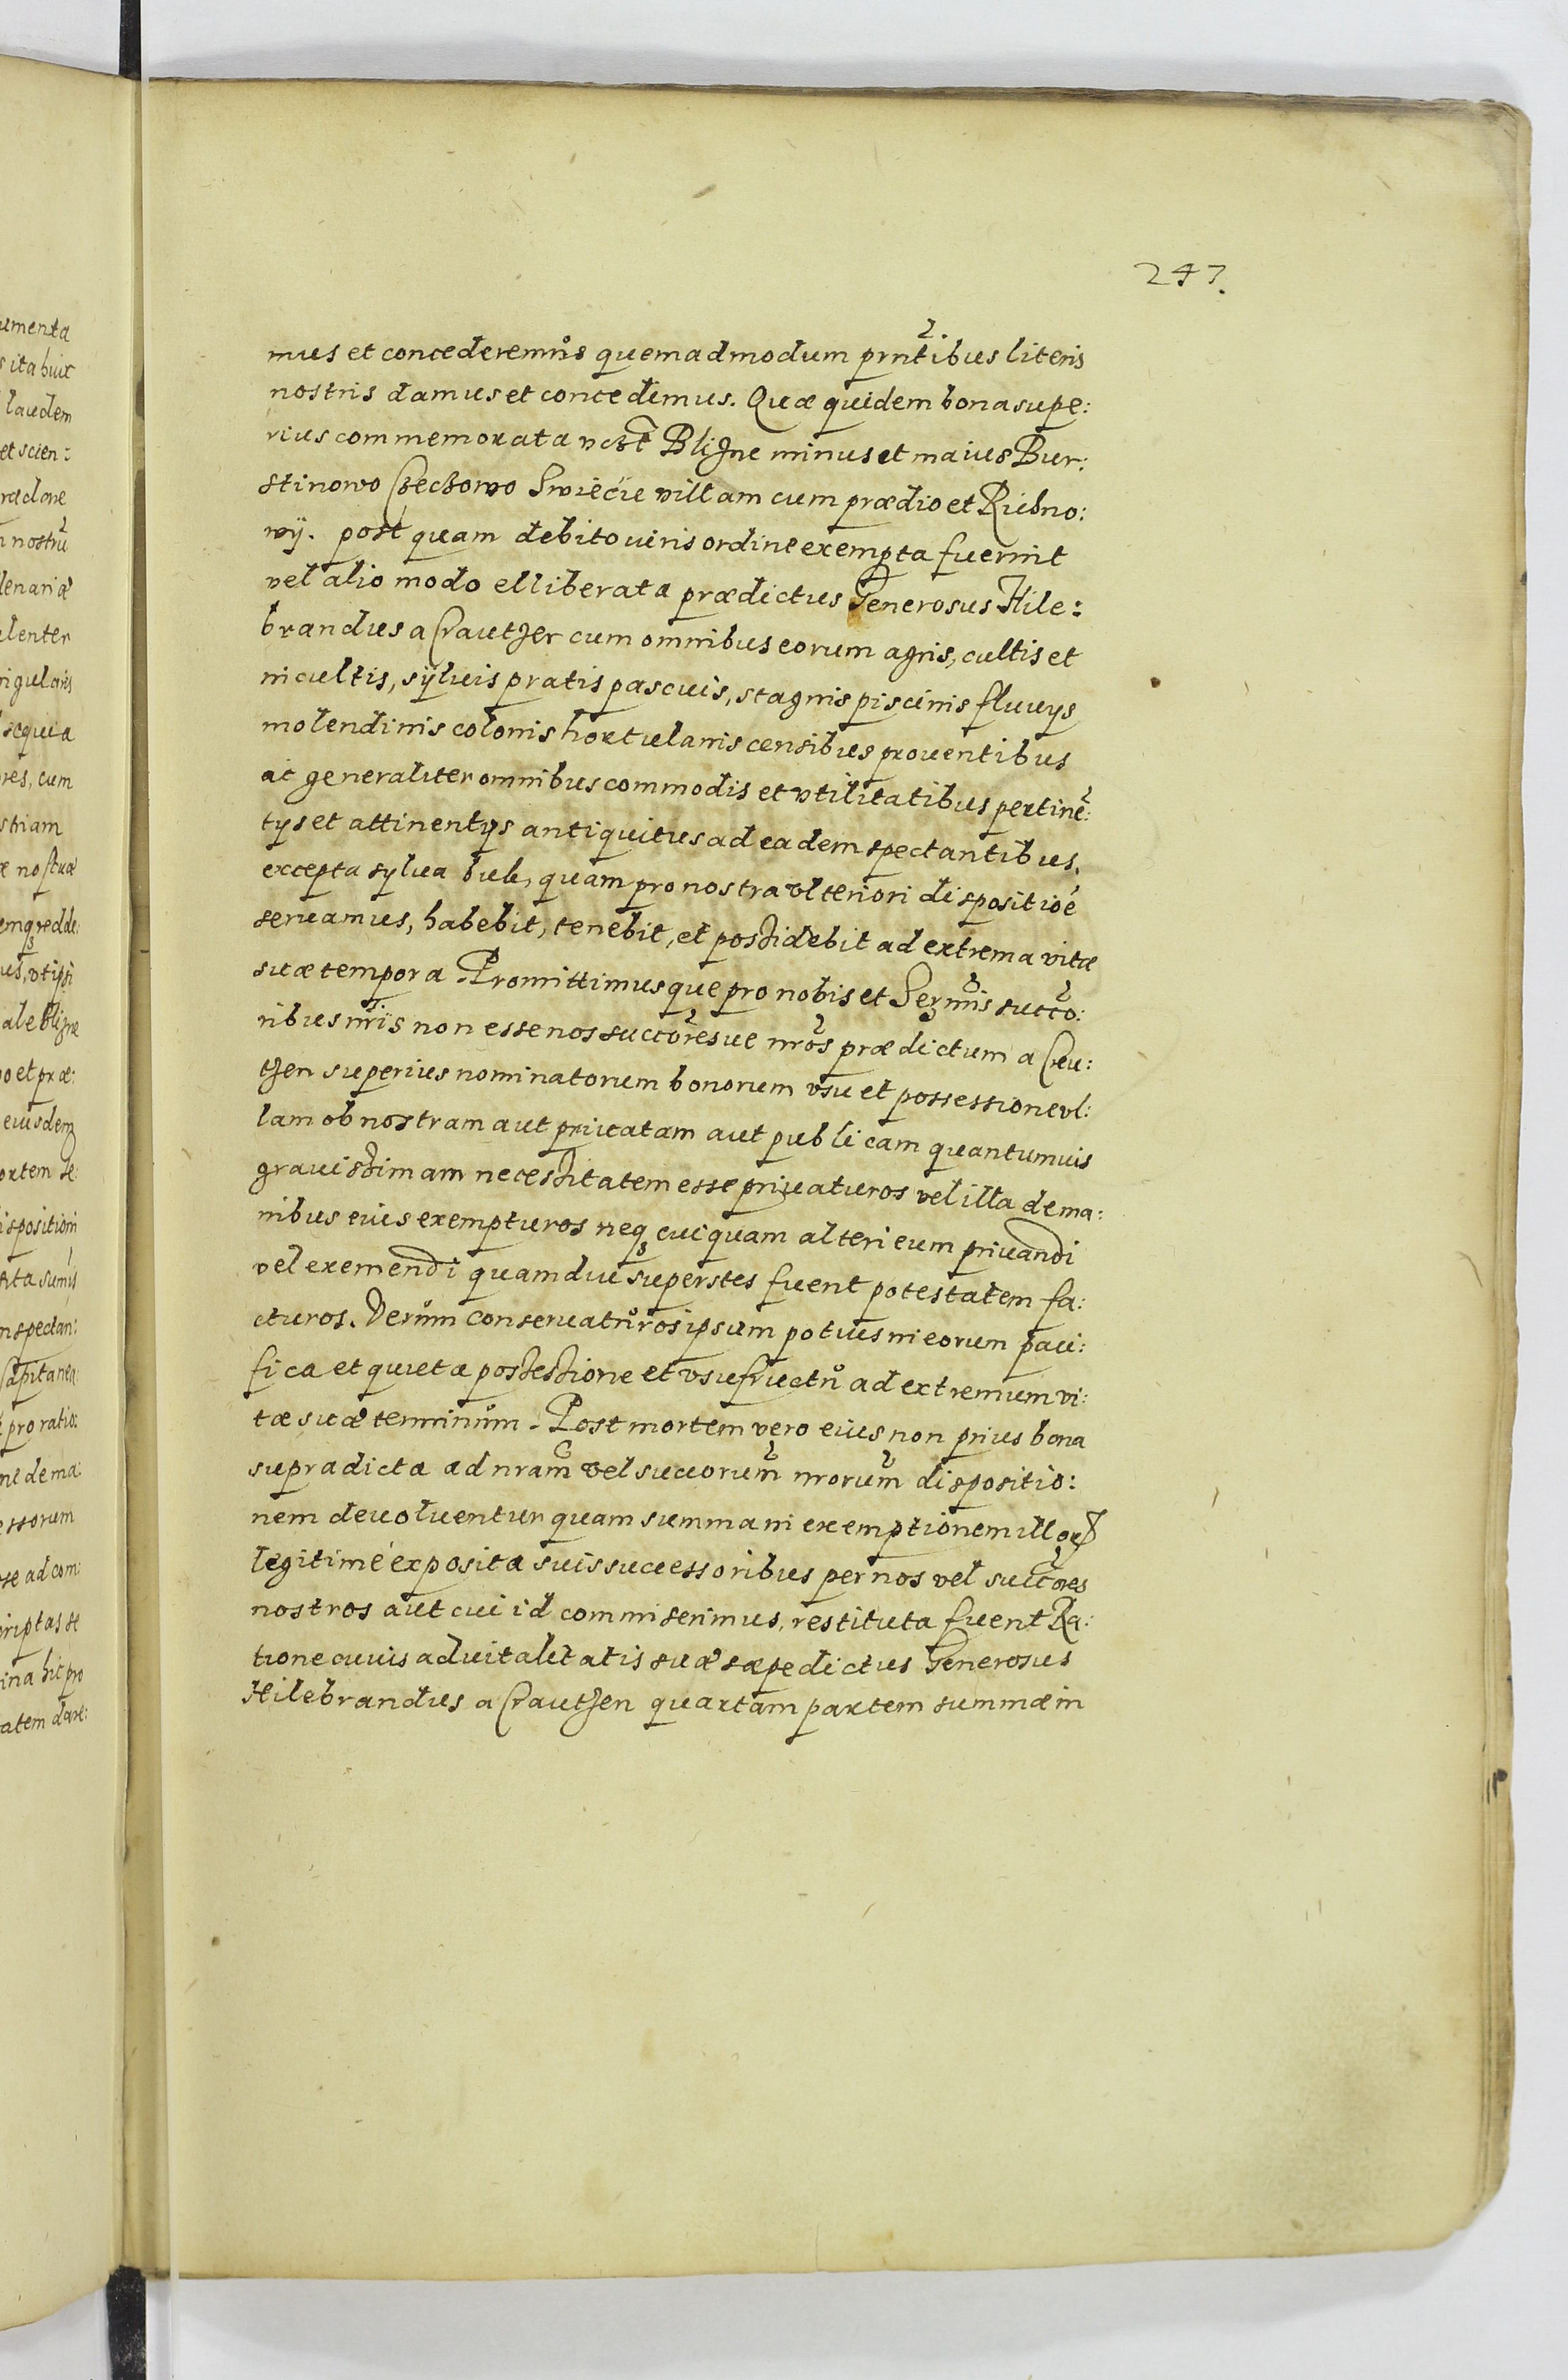 247.
mus et concederemus quemadmodum prntibus literis
nostris damus et concedimus. Quæ quidem bona supe:
rius commemorata vczt Blizne minus et maius Bur:
stinowo Czeczowo Swiecie villam cum prædio et Richno:
wÿ. post quam debito viris ordine exempta fuerint
vel alio modo elliberata prædictus Generosus Hile:
brandus a Crautzer cum omnibus eorum agris, cultis et
incultis, sÿluis pratis pascuis, stagnis piscinis fluuÿs
molendinis colonis hortulanis censibus prouentibus
ac generaliter omnibus commodis et vtilitatibus pertine:
tÿs et attinentÿs antiquitus ad eadem spectantibus,
excepta sylua bub, quam pro nostra vlteriori dispositioe
seruamus, habebit, tenebit, et possidebit ad extrema vitæ
suæ tempora. Promittimusque pro nobis et Sermis succo:
ribus nris non esse nos succoresue nros prædictum a Creu:
tzen superius nominatorum bonorum vsu et possessione vl:
lam ob nostram aut priuatam aut publicam quantumuis
grauissimam necessitatem esse priuaturos vel illa de ma:
nibus eius exempturos neq cuiquam alteri eum priuandi
vel exemendi quamdiu superstes fuerit potestatem fa:
cturos. Verum conseruaturos ipsum potius in eorum paci:
fica et quieta possessione et vsufructu ad extremum vi:
tæ suæ terminum. Post mortem vero eius non prius bona
supradicta ad nram vel succorum nrorum dispositio:
nem deuoluentur quam summa in exemptionem illor
legitimé exposita suis successoribus per nos vel succores
nostros aut cui id commiserimus, restituta fuerit Ra:
tione cuuis aduitalitatis suæ sæpedictus Generosus
Hilebrandus a Crautzen quartam partem summæ in